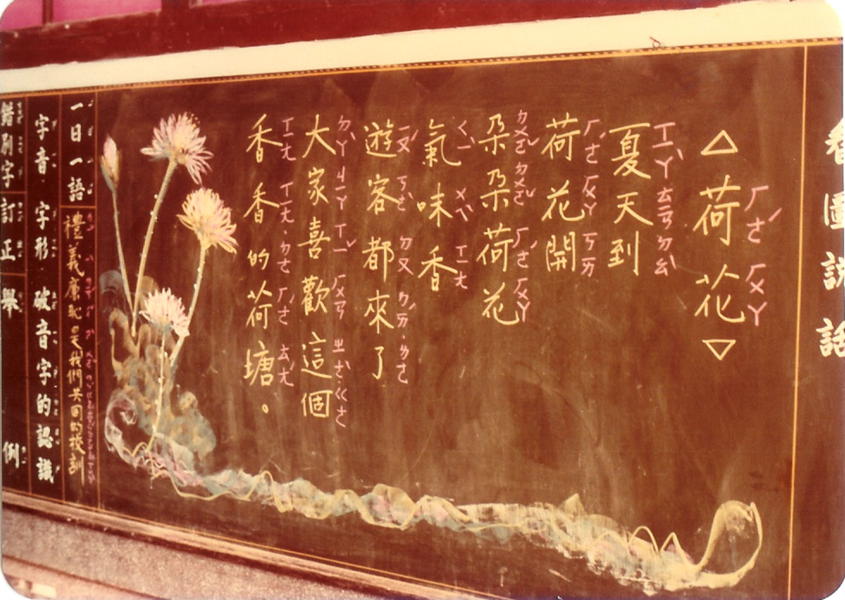 看圖說話
△荷花▽
ㄏㄜˊ ㄏㄨㄚ
夏天到
ㄒㄧㄚˋ ㄊㄧㄢ ㄉㄠˋ
荷花開
ㄏㄜˊ ㄏㄨㄚ ㄎㄞ
朵朵荷花
ㄉㄨㄛˇ ㄉㄨㄛˇ ㄏㄜˊ ㄏㄨㄚ
氣味香
ㄑㄧˋ ㄨㄟˋ ㄒㄧㄤ
遊客都來了
ㄧㄡˊ ㄎㄜˋ ㄉㄡ ㄌㄞˊ ˙ㄌㄜ
大家喜歡這個
ㄉㄚˋ ㄐㄧㄚ ㄒㄧˇ ㄏㄨㄢ ㄓㄜˋ ˙ㄍㄜ
香香的荷塘。
ㄒㄧㄤ ㄒㄧㄤ ˙ㄉㄜ ㄏㄜˊ ㄊㄤˊ
一日一語
禮義廉恥是我們共同的校訓
字音 字形 破音字的認識
錯別字訂正舉例